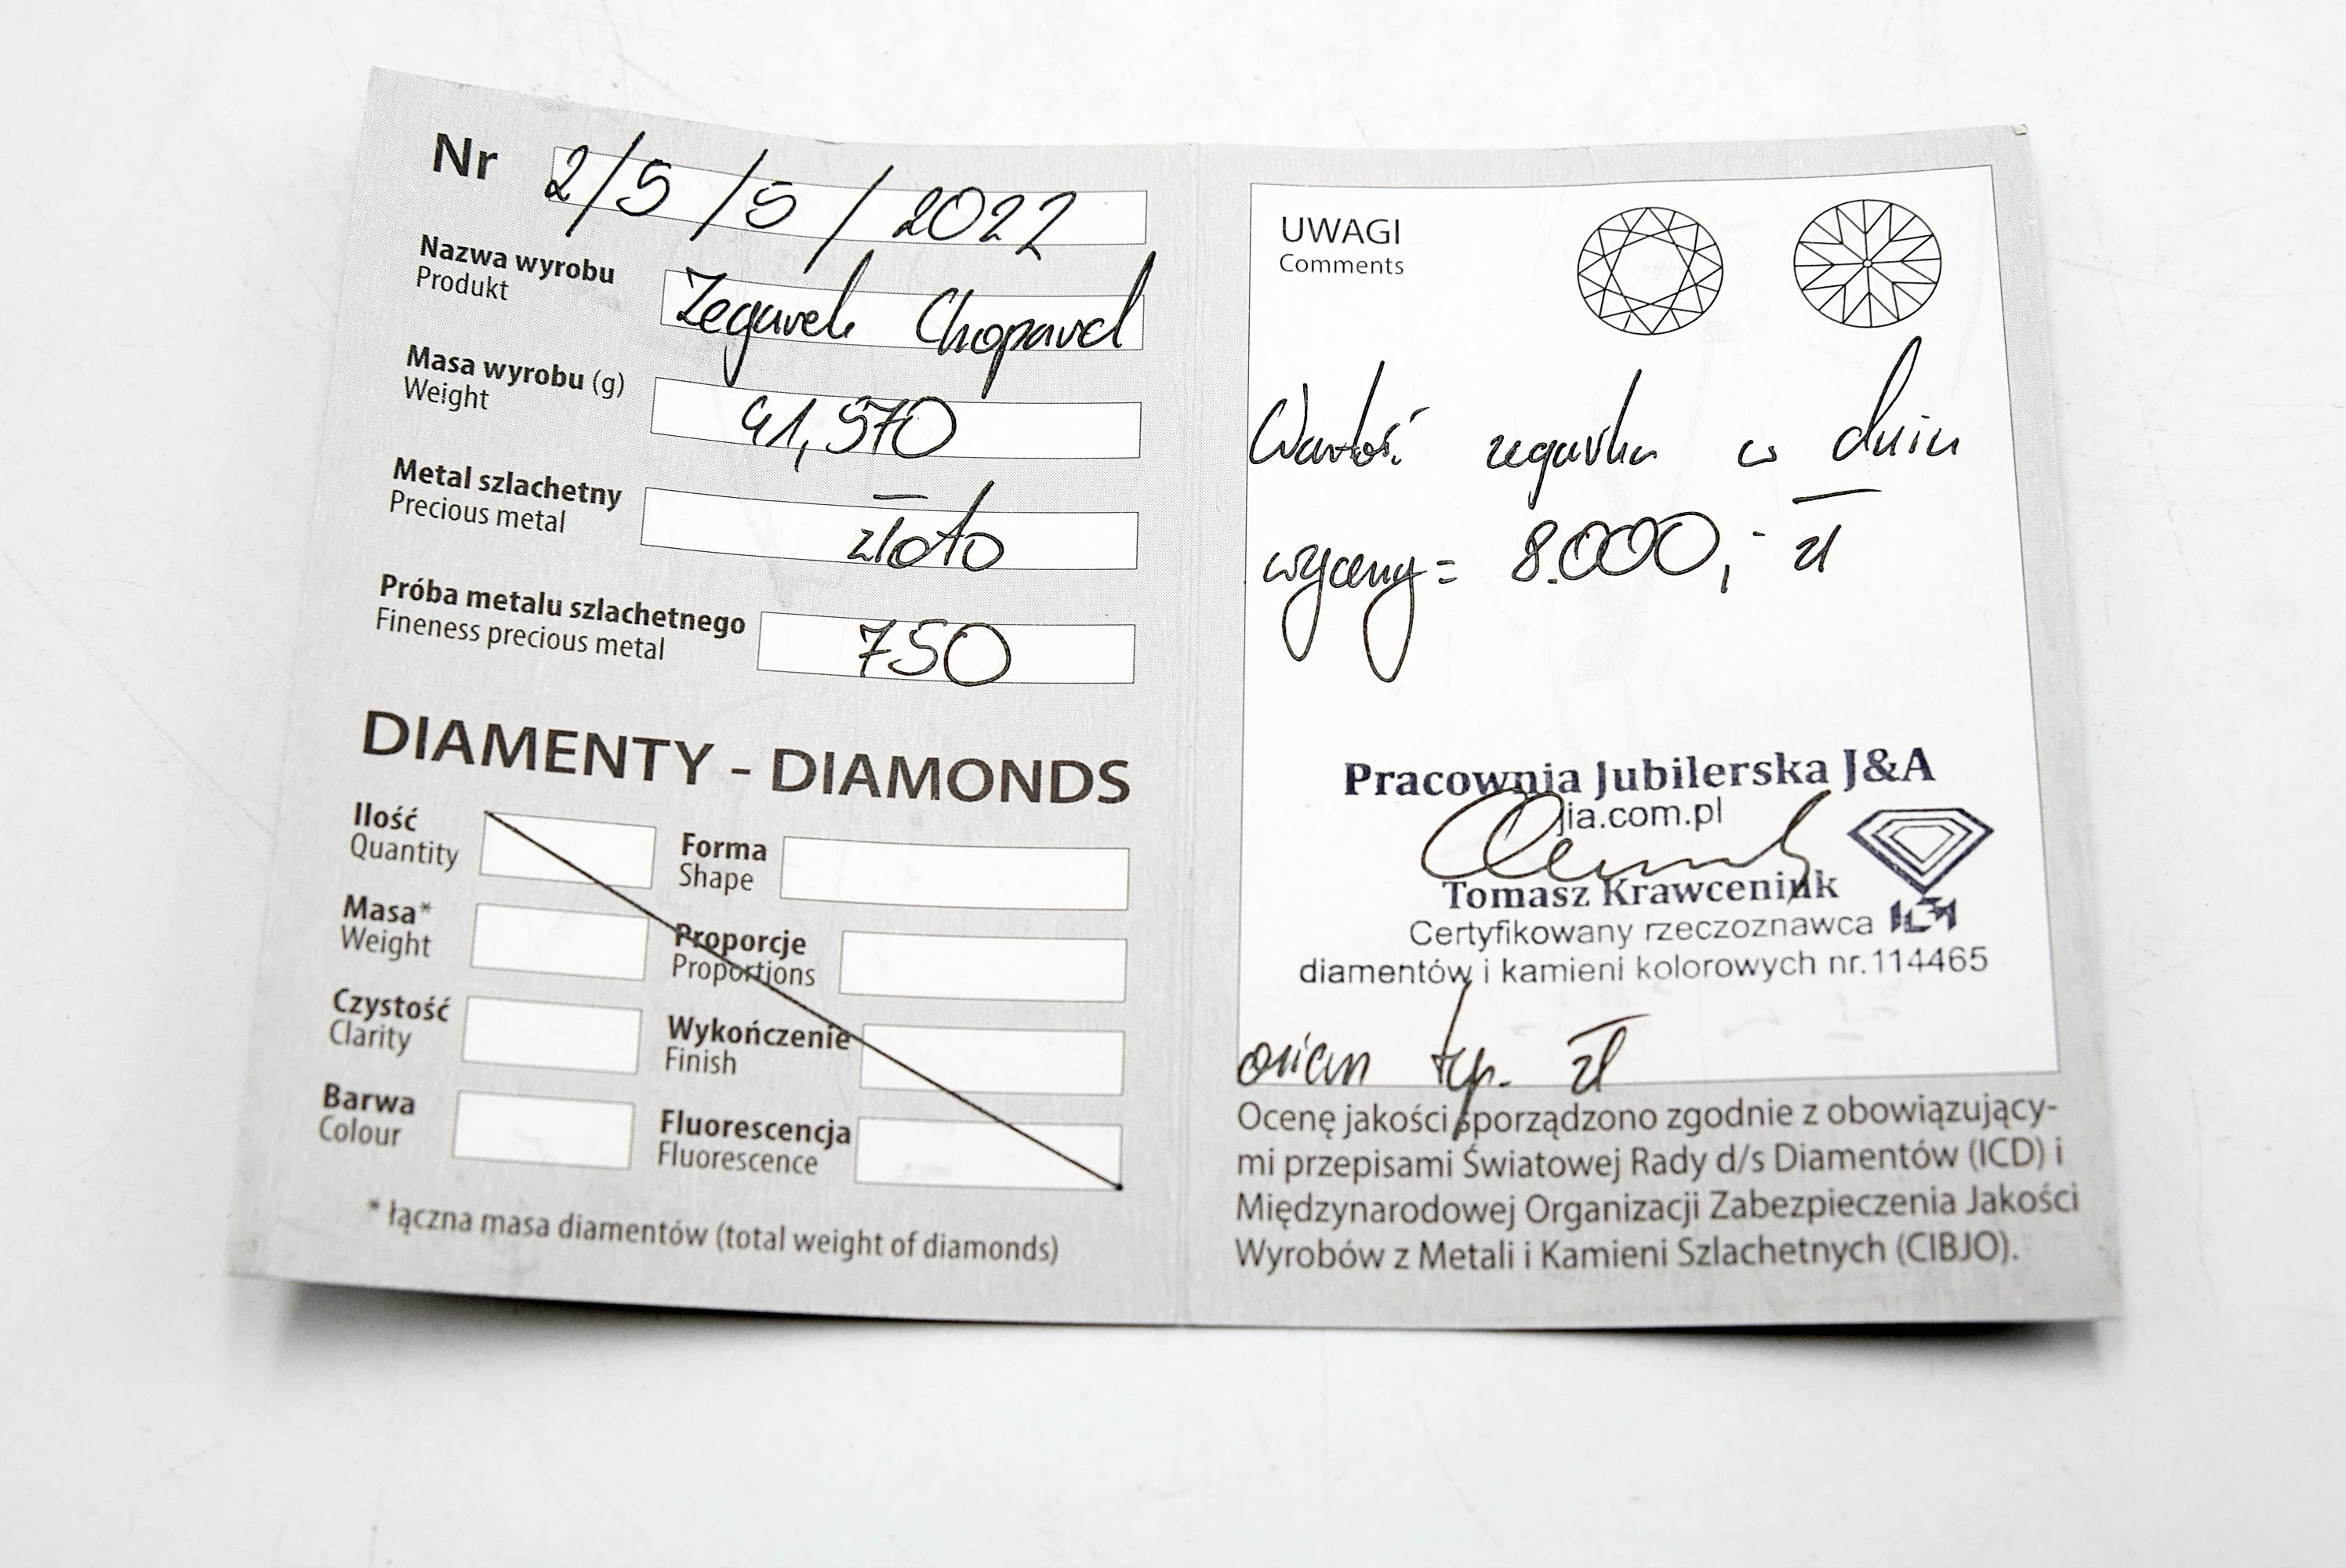 Nr 2/5/5/2022
Nazwa wyrobu Zegarek Chopard
Produkt
Masa wyrobu (g) 41,570
Weight
Metal szlachetny złoto
Precious metal
Próba metalu szlachetnego 750
Fineness precious metal
DIAMENTY - DIAMONDS
Ilość Forma
Quantity Shape
Masa* Proporcje
Weight Proportions
Czystość Wykończenie
Clarity Finish
Barwa Fluorescencja
Colour Fluorescence
* łączna masa diamentów (total weight of diamonds)
UWAGI
Comments
Wartość zegarka w dniu
wyceny = 8.000,- zł
Pracownia Jubilerska J&A
jia.com.pl
Tomasz Krawceniuk
Certyfikowany rzeczoznawca
diamentów i kamieni kolorowych nr.114465
osiem tys. zł
Ocenę jakości sporządzono zgodnie z obowiązujący-
mi przepisami Światowej Rady d/s Diamentów (ICD) i
Międzynarodowej Organizacji Zabezpieczenia Jakości
Wyrobów z Metali i Kamieni Szlachetnych (CIBJO).